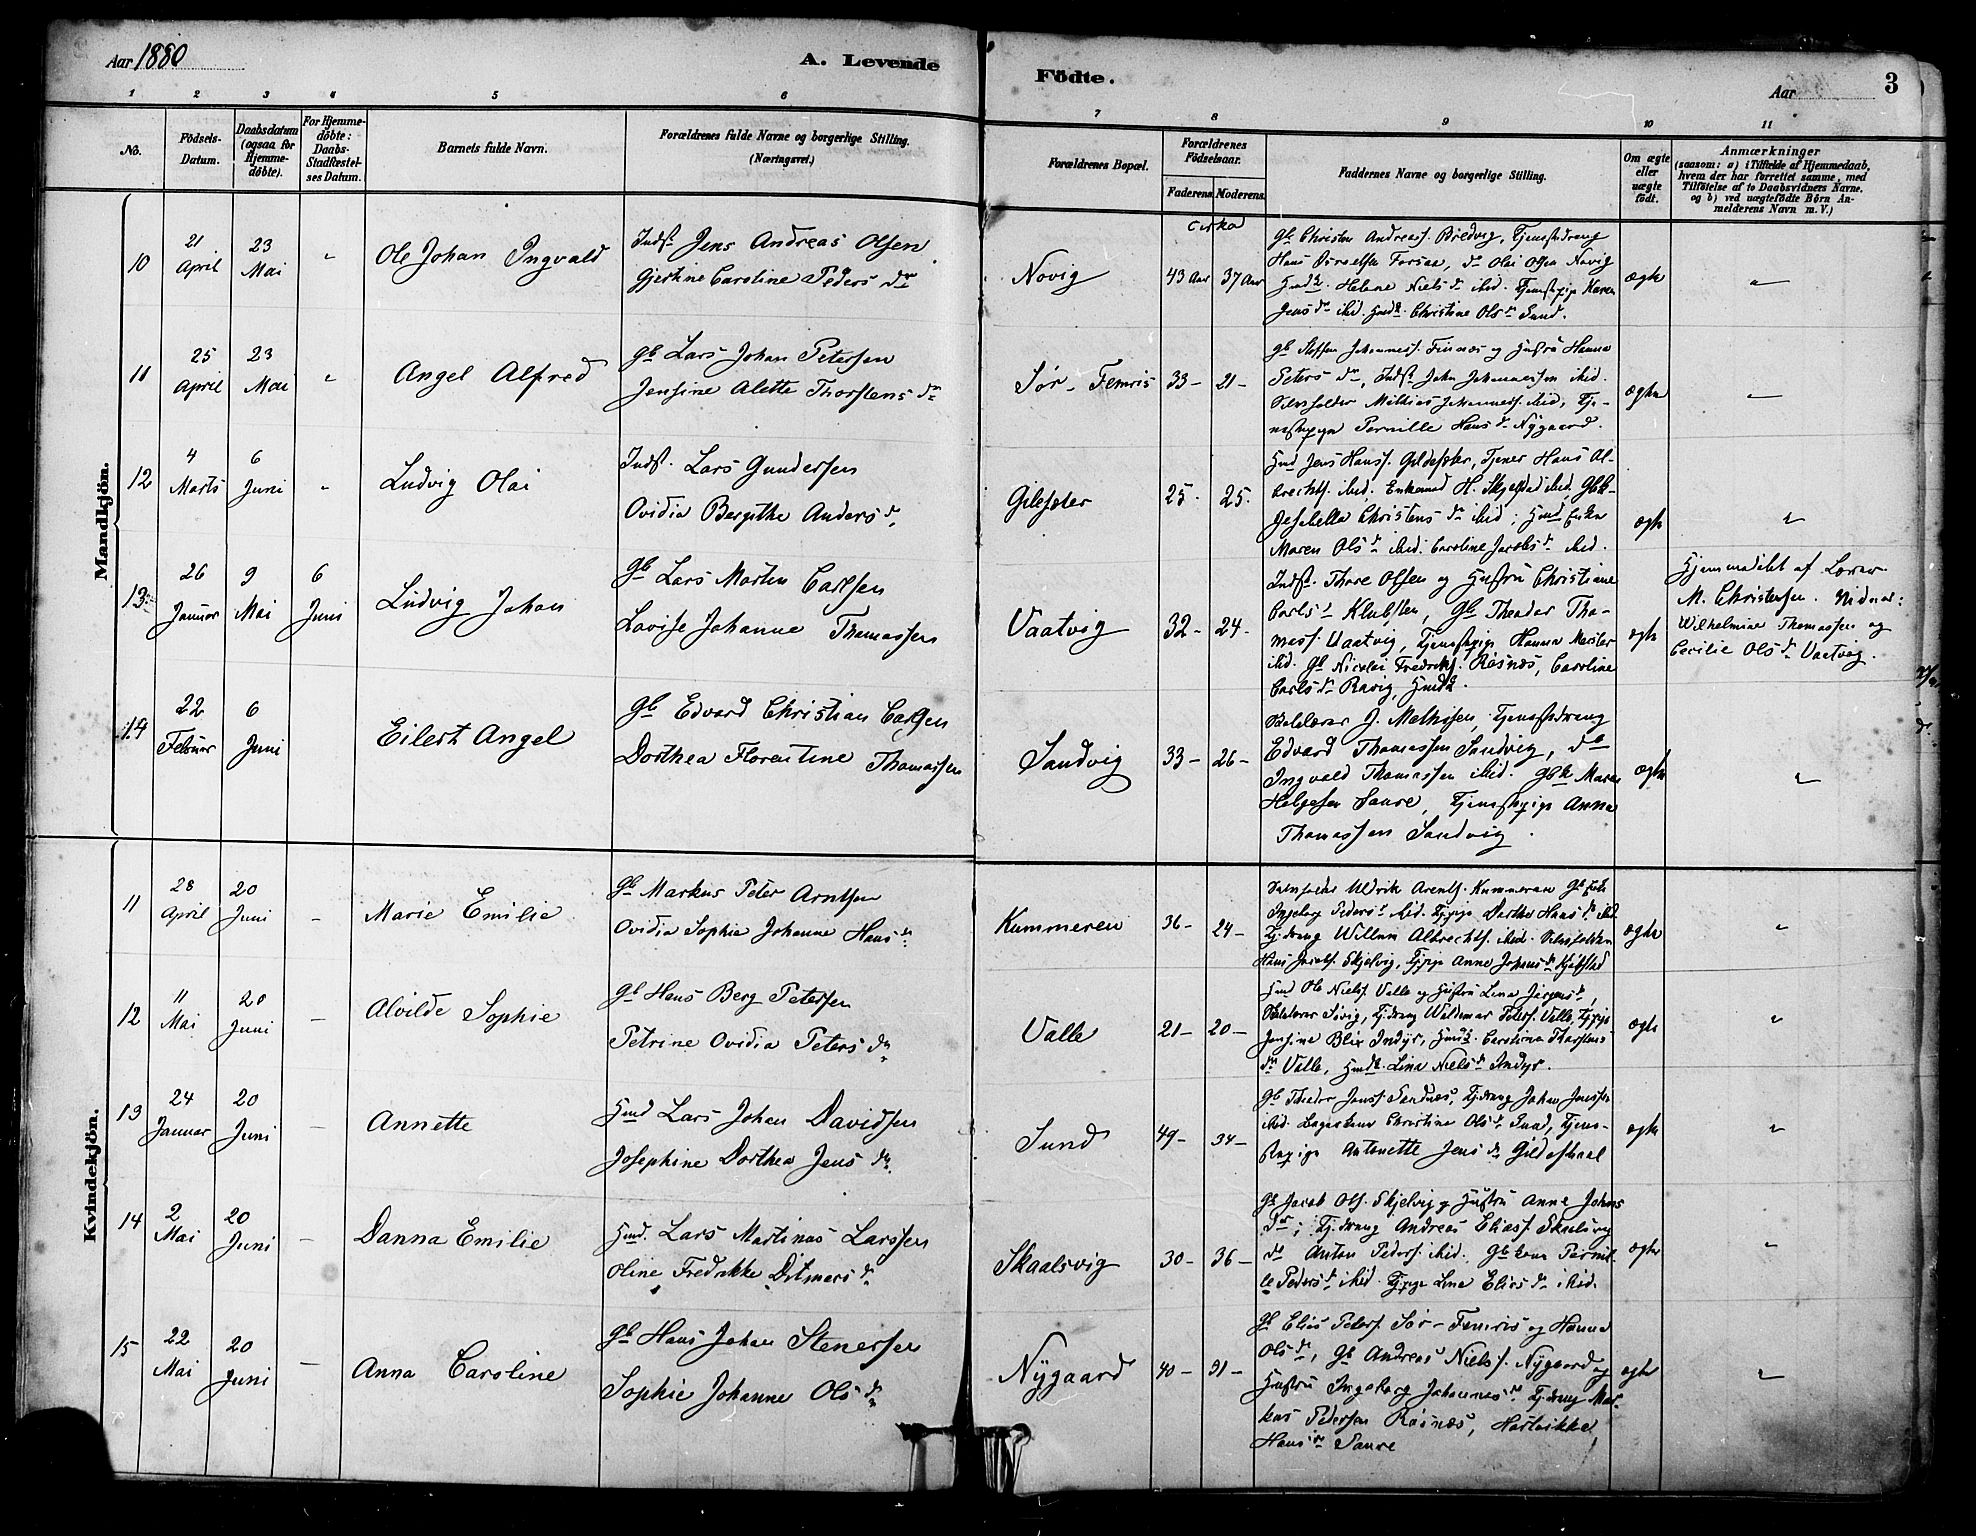 Aar 1880
A. Levende
Födte.
Aar
3
1 2 3 4 5 6 7 8 9 10 11
No.
Födsels-
Datum.
Daabsdatum
(ogsaa for
Hjemme-
döbte).
For Hjemme-
döbte:
Daabs-
Stadfæstel-
ses Datum.
Barnets fulde Navn.
Forældrenes fulde Navne og borgerlige Stilling.
(Næringsvei.)
Forældrenes Bopæl.
Forældrenes
Födselsaar.
Faderens. Moderens.
Faddernes Navne og borgerlige Stilling.
Om ægte
eller
uægte
födt.
Anmærkninger
(saasom: a) i Tilfælde af Hjemmedaab,
hvem der har forrettet samme, med
Tilföielse af to Daabsvidners Navne.
og b) ved uægtefödte Börn An-
melderens Navn m. V.)
Mandkjön.
10
21
April
23
Mai
"
Ole Johan Ingvald
Indst. Jens Andreas Olsen
Gjertine Caroline Peders dr
Novig
cirka
43 Aar 37 Aar
Gb Christen Andreass. Bredvig, Tjenestedreng
Hans Forsaa, do Olai Olsen Novig
Helene Niels dr ibid. Tjenestpige Karen
Jens dr ibid. Christine Ols dr Sund.
ægte
"
11
25
April
23
Mai
"
Angel Alfred
Gb Lars Johan Petersen
Jensine Alette Thorstens dr
Sør-Femris
33 - 21 -
Gb Steffen Johanness. Finnæs og Hustru Hanna
Peters dr, Indst. John Johannessen ibid.
Selvfolder Mathias Johanness. ibid, Tje-
nestpige Pernille Hans dr Nygaard.
ægte
"
12
4
Marts
6
Juni
"
Ludvig Olai
Indst. Lars Gundersen
Ovidia Bergithe Anders dr
Gildesæter
25. 25.
Gmd Jens Hanss. Gildesæter, Tjener Hans Al-
brechts. ibid. Enkemand H. Skjelstad ibid, Gbk.
Jesabella Christens dr ibid,
Maren Ols dr ibid. Caroline Jacobs dr ibid.
ægte
"
13
26
Januar
9
Mai
6
Juni
Ludvig Johan
Gb Lars Morten Carlsen
Lovise Johanne Thomassen
Vaatvig
32 - 24 -
Indst. Thore Olsen og Hustru Christiane
Carls dr Klubsten, Gb Theodor Tho-
mass. Vaatvig, Tjenestpige Hanna
ibid. Gb Nicolai Fredriks. Røsnæs, Caroline
Carls dr Ravig,
ægte
Hjemmedøbt af Lærer
M. Christensen. Vidner:
Wilhelmine Thomassen og
Cecilie Ols dr Vaatvig.
14
22
Februar
6
Juni
Eilert Angel
Gb Edvard Christian Carlsen
Dorthea Florentine Thomassen
Sandvig
33 - 26 -
J. Mathisen, Tjenestedreng
Edvard Thomassen Sandvig, do
Ingvald Thomassen ibid. Gbk Maren
Helgesen Saure, Tjenestpige Anna
Thomassen Sandvig.
ægte
"
Kvindekjön.
11
28
April
20
Juni
-
Marie Emilie
Gb Markus Peter Arntsen
Ovidia Sophie Johanne Hans dr
Kummeren
36 - 24 -
Uldrik Arents. Kummeren
Ingeborg Peders dr ibid. Tjpige Dorthea Hans dr ibid.
Tj.dreng Willum Albrechts. ibid.
Hans Jacobs. Skjelvig, Tjpige Anne Johans dr Kjøbstad
ægte
"
12
11
Mai
20
Juni
-
Alvilde Sophie
Gb Hans Berg Petersen
Petrine Ovidia Peters dr
Valle
21 - 20 -
Gmd Ole Niels. Valle og Hustru Lina Jørgens dr,
Sivig, Tj.dreng Waldemar Peters. Valle, Tjpige
Jensine Blix Indyr, Carolina Thorstens
dr Valle, Lina Niels dr Indyr.
ægte
"
13
24
Januar
20
Juni
-
Annette
Gmd Lars Johan Davidsen
Josephine Dorthea Jens dr
Sund
49 - 34 -
Gb Theodor Jenss. Sandnæs, Tj.dreng Johan Jenssen
ibid. Christine Ols dr Sund, Tjenes-
tepige Antonette Jens dr Gildeskaal
ægte
"
14
2
Mai
20
Juni
-
Danna Emilie
Gmd. Lars Martinus Larssen
Oline Fredrikke Ditmers dr
Skaalsvig
30 - 36 -
Gb Jacob Ols. Skjelvig og Hustru Anne Johans
dr, Tj.dreng Andreas Eliass. Skaalsvig
do Anton Peders. ibid. Gbkone Pernil-
le Peders dr ibid. Tjpige Lina Elias dr ibid.
ægte
"
15
22
Mai
20
Juni
-
Anna Caroline
Gb Hans Johan Stenersen
Sophie Johanne Ols dr
Nygaard
40 - 31 -
Gb Elias Peders. Sør-Femris og Hanna
Ols dr, Gb Andreas Niels. Nygaard og
Hustru Ingeborg Johannes dr Tj.dreng Mar-
kus Pedersen Røsnæs, Hartvikka
Hans dr Saure
ægte
"